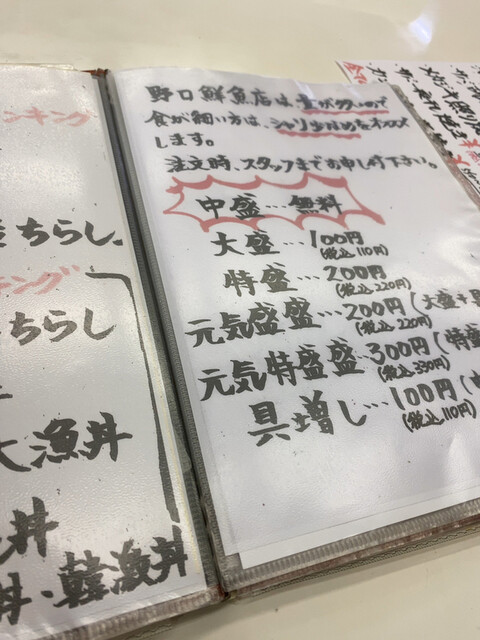 ンキング
ちらし。
キング
ちらし
大漁丼
丼
丼・韓漁丼
野口鮮魚店は、量が多いので
食が細い方は、シャリ少なめをオススメ
します。
注文時、スタッフまでお申し付下さい。
中盛…無料
大盛…100円
(税込110円)
特盛…200円
(税込220円)
元気盛盛…200円(大盛+具
(税込220円)
元気特盛盛…300円(特盛
(税込330円)
具増し…100円(
(税込110円)